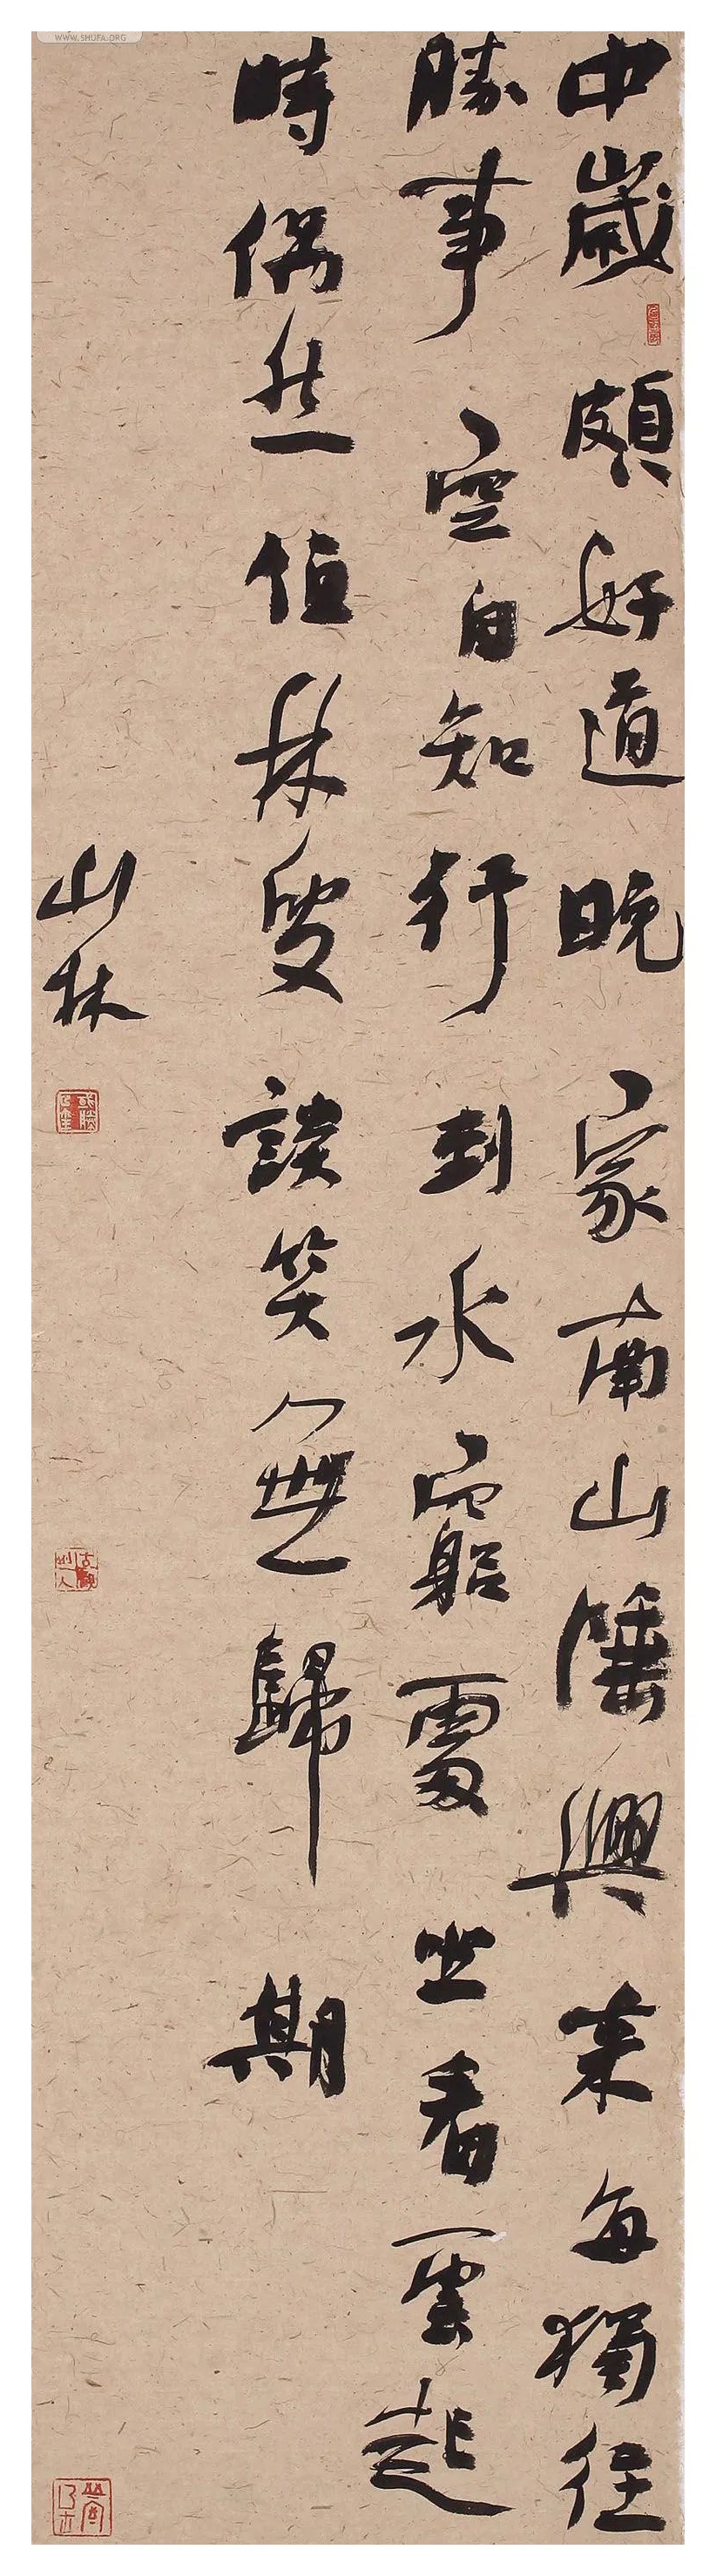 中歲頗好道晚家南山陲興來每獨往
勝事空自知行到水窮處坐看雲起
時偶然值林叟談笑無歸期
山林
WWW.SHUFA.ORG